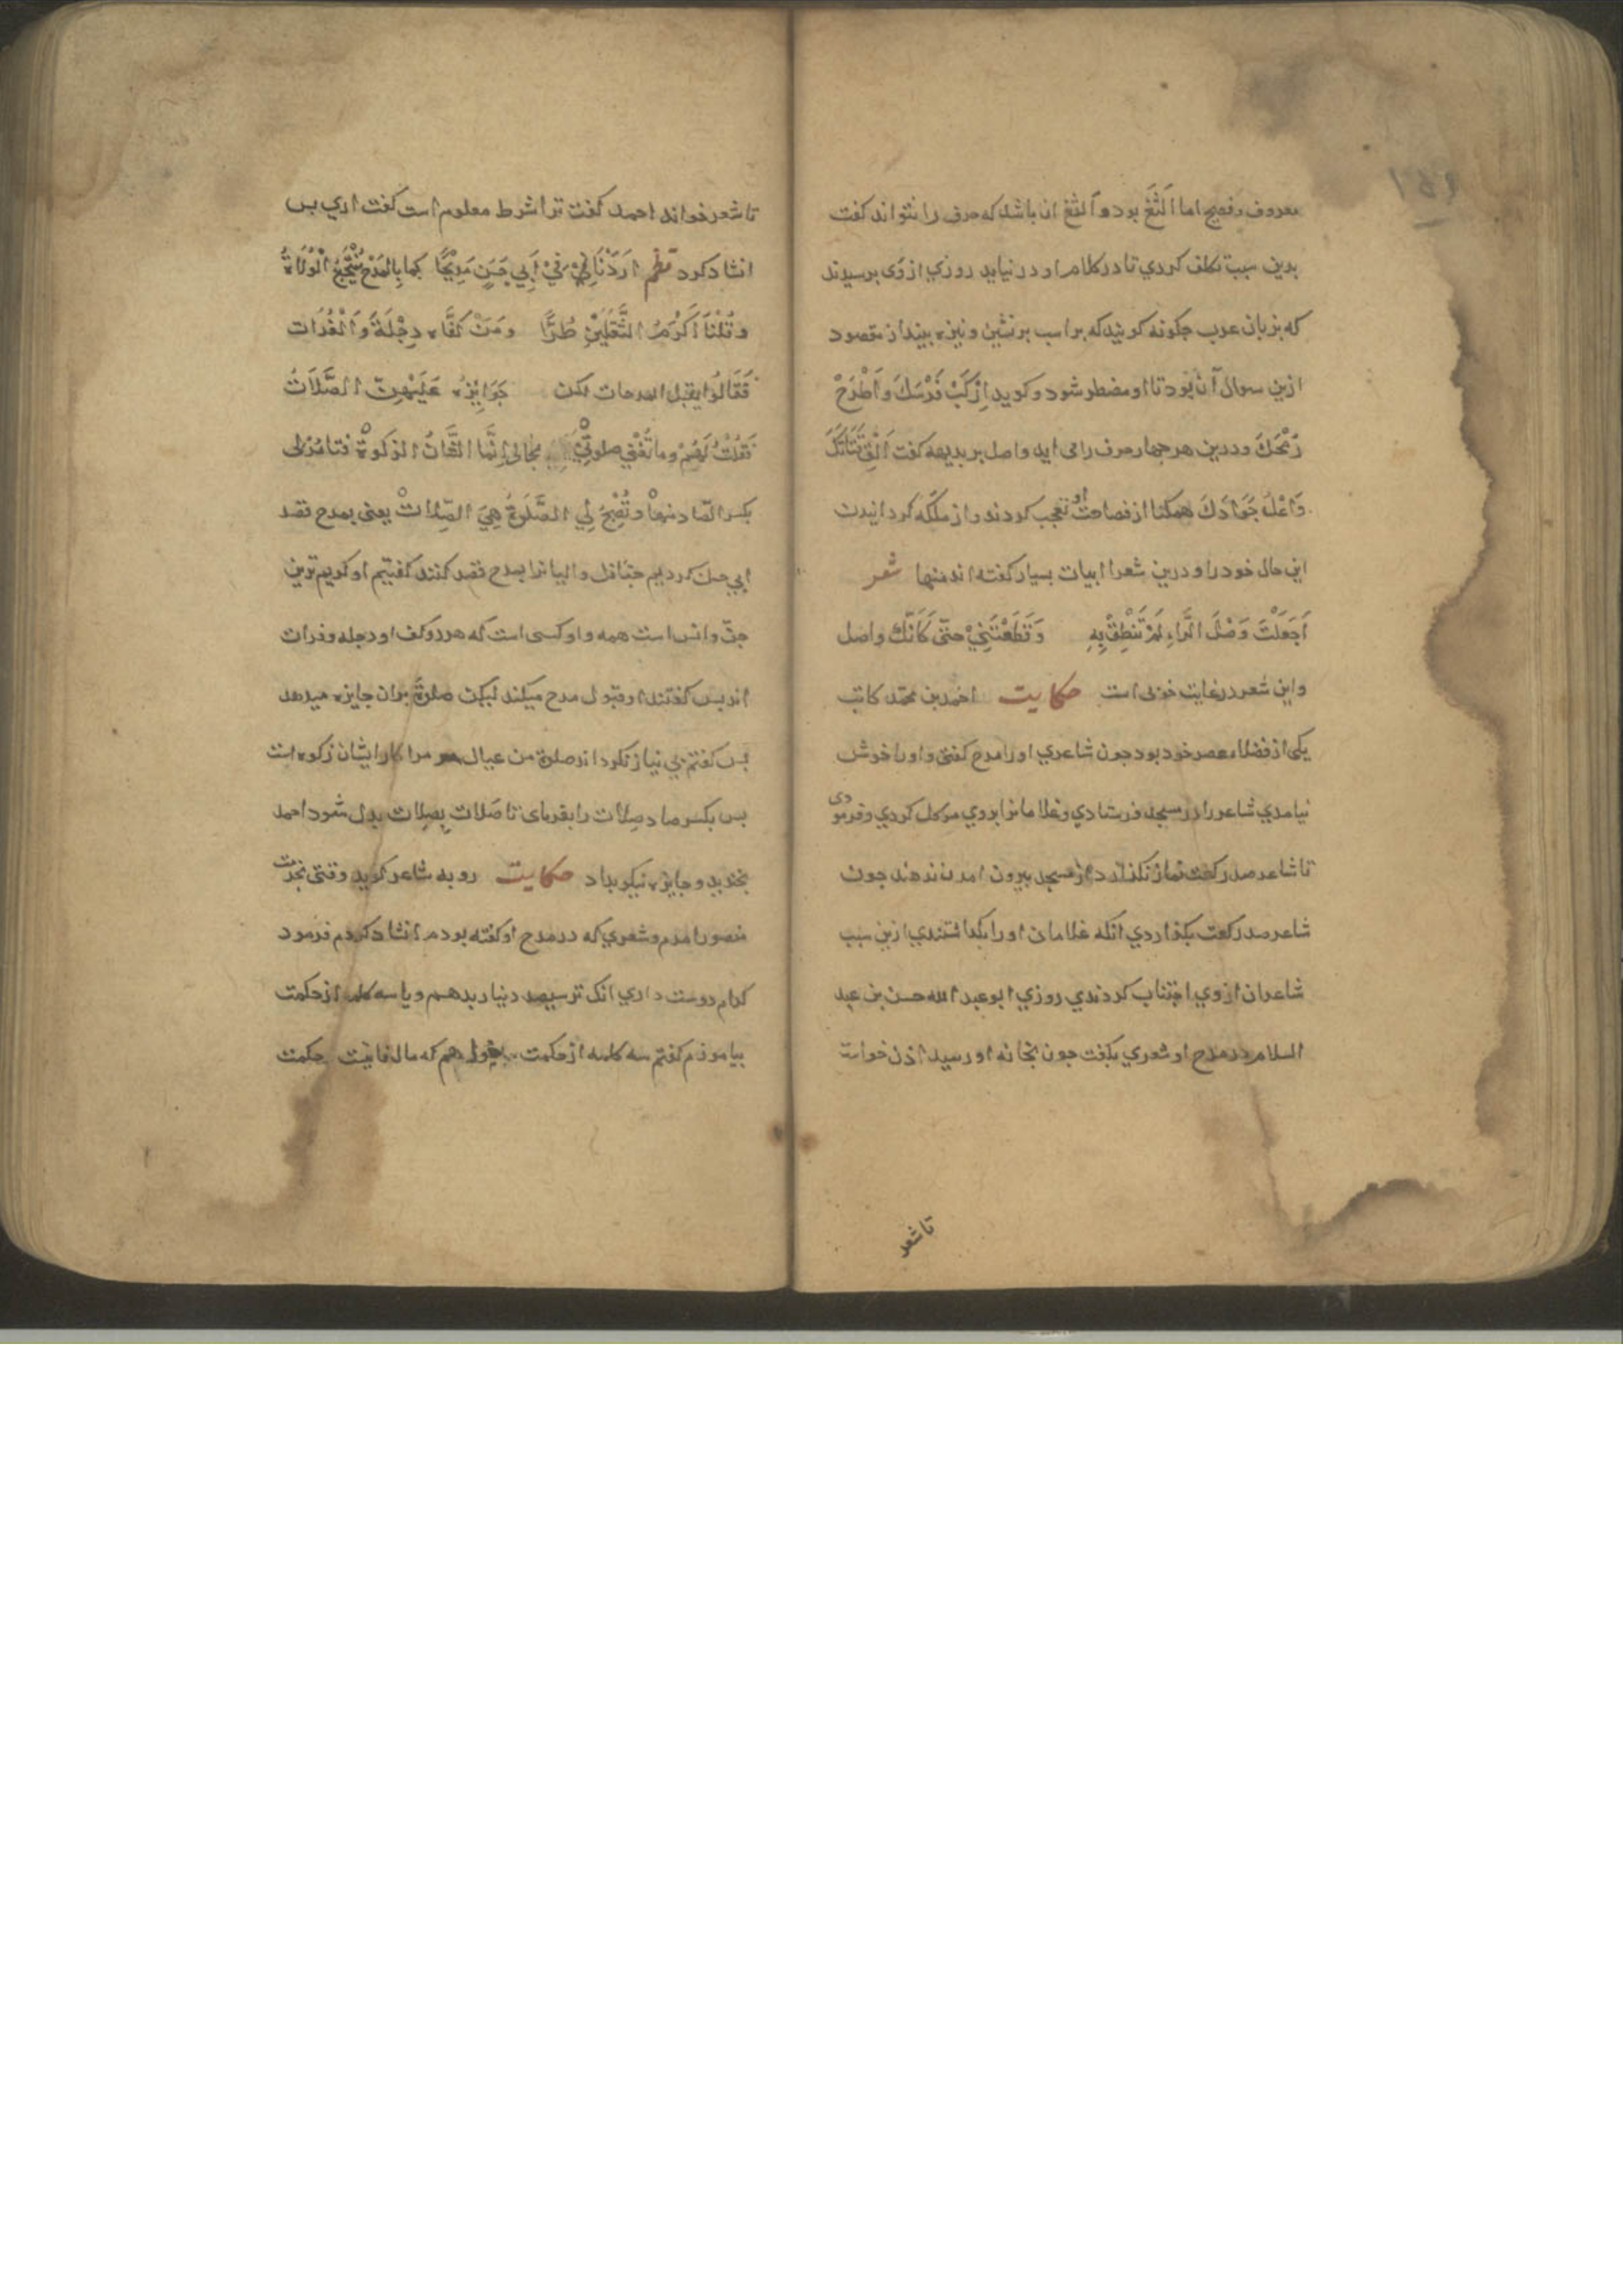 ۱۵۶
معروف و فصیح اما اَلْثَغ بود و اَلثغ ان باشد که حرف را نتواند کفت
بدین سبب تکلف کردی تا در کلام او در نیاید روزی از وی برسیدند
که بزبان عرب جکونه کویند که بر اسب برنشین و نیزه بینداز مقصود
ازین سوال آن بود تا او مضطر شود و کوید اِرْکَبْ فَرَسَكَ وَاَطْرَحْ
رُمْحَكَ و درین هر جهار حرف را می اید واصل بر بدیهه کفت اَلْقِ قَنَاتَكَ
وَاعْلُ جَوَادَكَ همکنا از فصاحت او تعجب کردند و از ملکه کردانیدن
این حال خود را و درین شعرا ابیات بسیار کفته اند منها شعر
اَجَعَلْتَ وَصْلَ الرَّاءِ لَمْ تَنْطِقْ بِهِ وَقَطَعْتَنِيْ حتّی كَاَنَّكَ واصل
واین شعر در غایت خوبی است حکایت احمد بن محمّد کاتب
یکی از فضلاء عصر خود بود جون شاعری اورا مدح کفتی و اورا خوش
نیامدی شاعر را در مسجد فرستادی و غلامانرا بر وی موکل کردی و فرمودی
تا شاعر صد رکعت نماز نکذارد از مسجد بیرون امدن ندهند جون
شاعر صد رکعت بکذاردی انکه غلامان اورا بکذاشتندی ازین سبب
شاعران از وی اجتناب کردندی روزی ابو عبد الله حسن بن عبد
السلام در مدح او شعری بکفت جون بخانه او رسید اذن خواست
تا شعر
تا شعر خواند احمد کفت ترا شرط معلوم است کفت اری بس
انشاد کرد نظم اَرَدْنَا فِيْ اَبِي حَسَنٍ مَدِيْحًا كما بِالمَدْحِ يُنْتَجَعُ الْوُلَاةُ
وَقُلْنَا اَكْرَمُ الثَّقَلَيْنِ طُرًّا وَمَنْ كَفَّاه دِجْلَةُ وَالْفُرَات
فَقَالُوا يقبل المدحات لکن جَوَايِزُه عَلَيْهِنّ الصَّلَاتُ
فَقُلْتُ لَهُمْ وما تُغْنِي صلوتي عيالي اِنَّما الشَّانُ الزكوةُ فتامرلی
بکسر الصّاد منها وتُصْبِحُ لِي الصَّلٰوةُ هِيَ الصِّلات یعنی بمدح قصد
ابی حسن کردیم جنانك والیانرا بمدح قصد کنند کفتیم او کریم ترین
جنّ و انس است همه و او کسی است که هر دو کف او دجله و فرات
اند بس کفتند او قبول مدح میکند لیکن صلوة بران جایزه میدهد
بس کفتم بی نیاز نکرداند صلوة من عیال مرا کار ایشان زکوه است
بس بکسر صاد صلات را بفرمای تا صَلات بصِلات بدل شود احمد
بخندید و جایزه نیکو بداد حکایت روبه شاعر کوید وقتی بخدمت
منصور امدم و شعری که در مدح او کفته بودم انشاد کردم فرمود
کدام دوست داری انك ترا سیصد دینار بدهم و یا سه کلمه از حکمت
بیاموزم کفتم سه کلمه از حکمت که مال فانیست حکمت